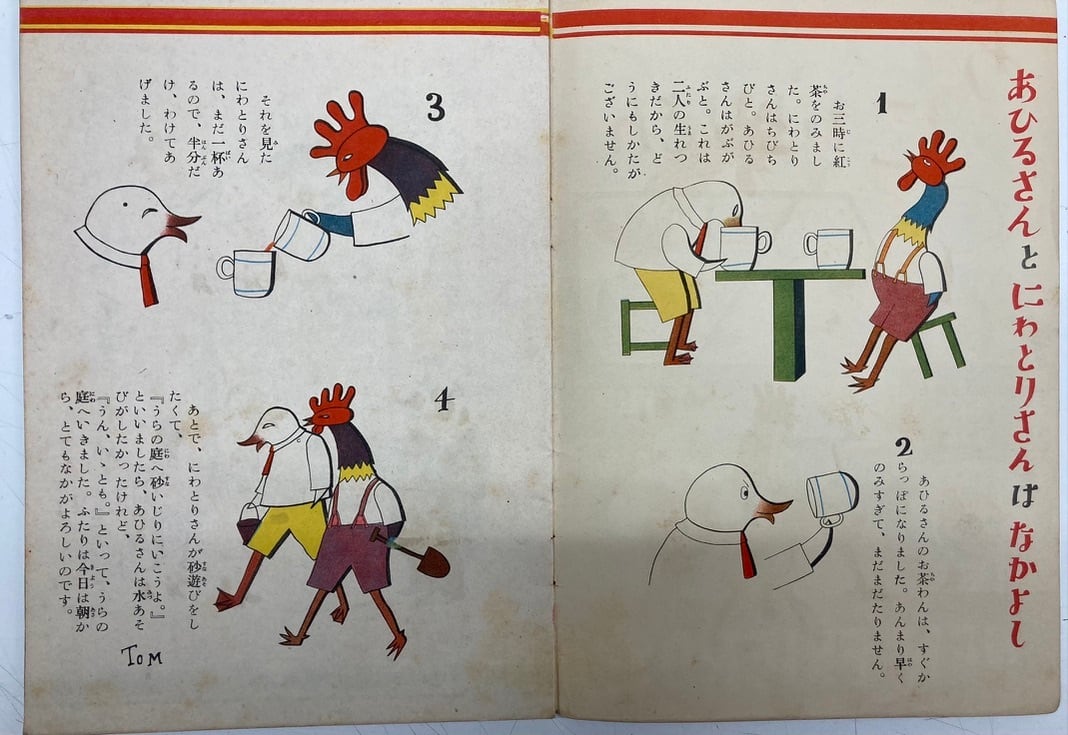 あひるさんとにわとりさんはなかよし
1
お三時に紅
茶をのみまし
た。にわとり
さんはちびち
びと。あひる
さんはがぶが
ぶと。これは
二人の生れつ
きだから、ど
うにもしかたが
ございません。
2
あひるさんのお茶わんは、すぐか
らっぽになりました。あんまり早く
のみすぎて、まだまだたりません。
3
それを見た
にわとりさん
は、まだ一杯あ
るので、半分だ
け、わけてあ
げました。
4
あとで、にわとりさんが砂遊びをし
たくて、
『うらの庭へ砂いじりにいこうよ。』
といいましたら、あひるさんは水あそ
びがしたかったけれど、
『うん、いゝとも。』といって、うらの
庭へいきました。ふたりは今日は朝か
ら、とてもなかがよろしいのです。
TOM